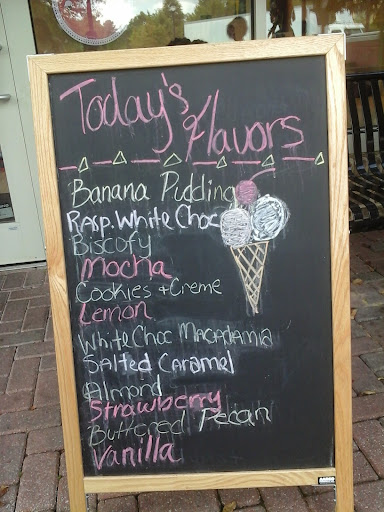 Today's
Flavors
Banana Pudding
Rasp. White Choc
Biscofy
Mocha
Cookies + Creme
Lemon
White Choc Macadamia
Salted Caramel
Almond
Strawberry
Buttered Pecan
Vanilla